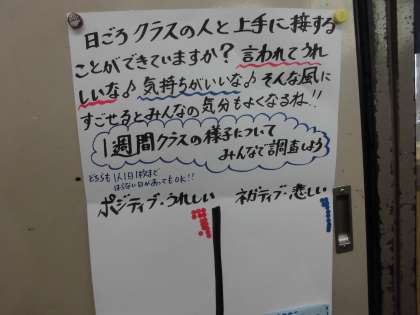 日ごろクラスの人と上手に接する
ことができていますか？言われてうれ
しいな♪気持ちがいいな♪そんな風に
すごせるとみんなの気分もよくなるね!!
1週間クラスの様子について
みんなで調査しよう
どちらも1人1日1枚まで
はらない日があってもOK!!
ポジティブ・うれしい
ネガティブ・悲しい